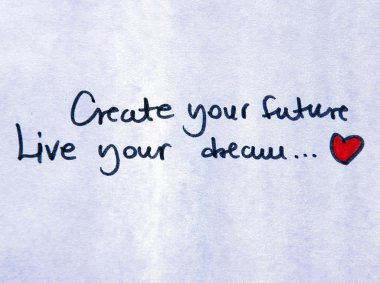 Create your future
Live your dream...